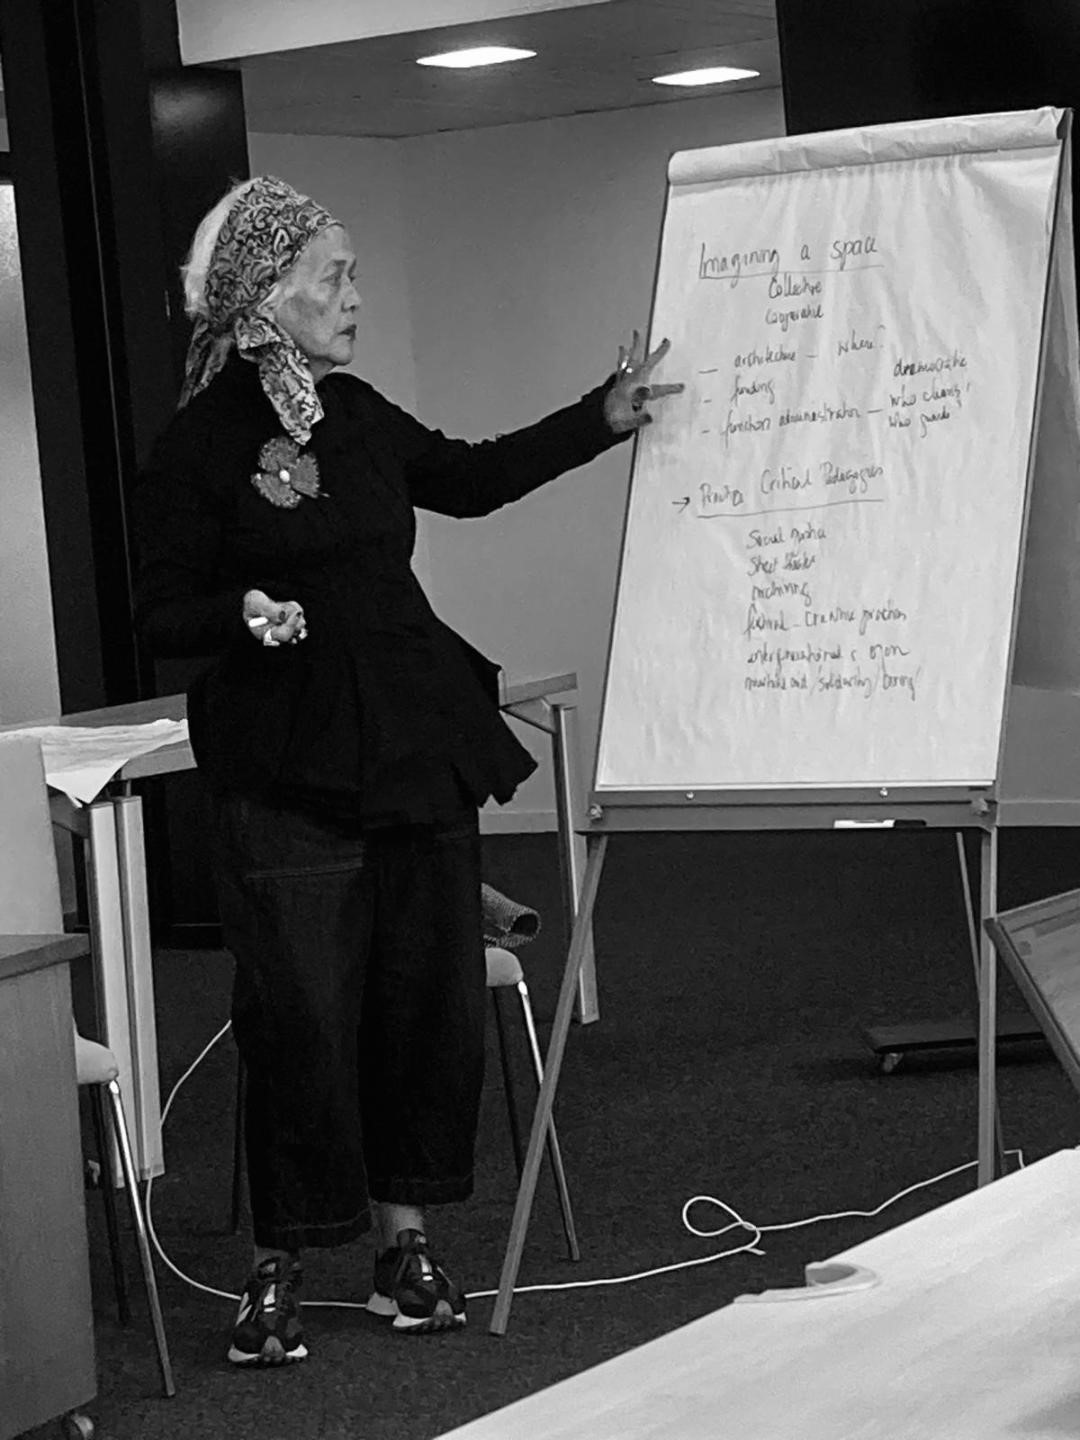 Imagining a space
Collective
Cooperative
— architecture — where?
- funding democratic
- function administration — who cleans?
who guards?
→ Critical Pedagogies
Social justice
Street theatre
archiving
festival - creative practices
intergenerational
mutual aid / solidarity / caring